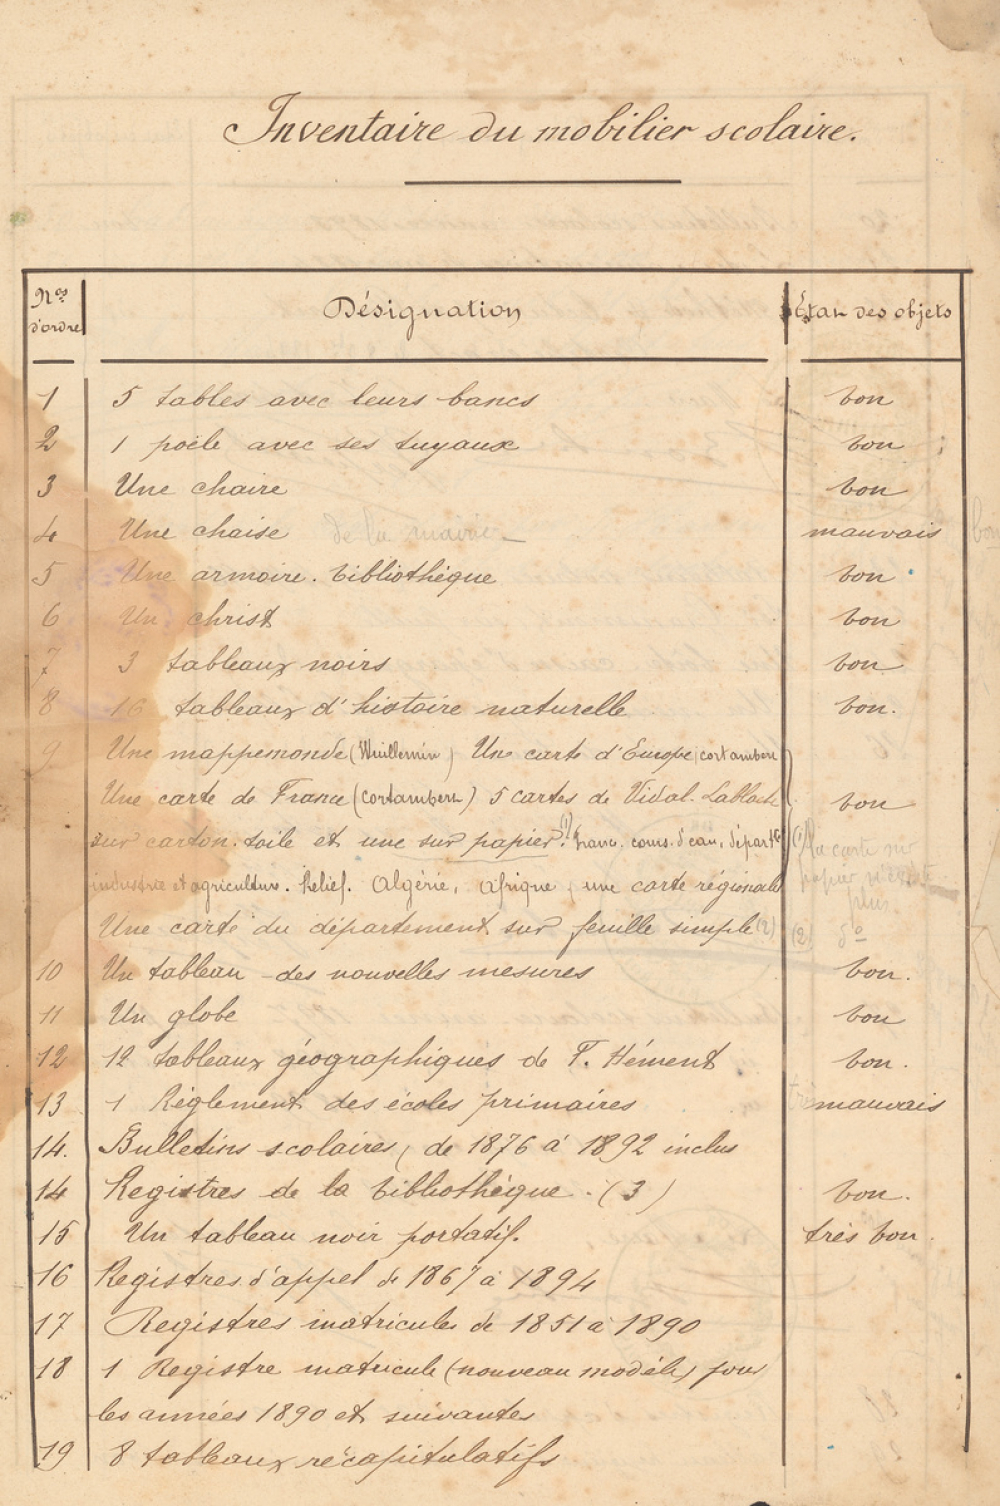 Inventaire du mobilier scolaire.
Nos d'ordre Désignation État des objets
1 5 tables avec leurs bancs bon
2 1 poële avec ses tuyaux bon
3 Une chaire bon
4 Une chaise de la mairie mauvais
5 Une armoire. bibliothèque bon
6 Un christ bon
7 3 tableaux noirs bon
8 16 tableaux d'histoire naturelle bon.
9 Une mappemonde (Wuillemin) Une carte d'Europe, cortambert
Une carte de France (cortambert) 5 cartes de Vidal. Lablache bon
sur carton. toile et une sur papier. (1) France. cours. d'eau, départts (1) La carte sur
industrie et agriculture. Relief. Algérie, Afrique, une carte régionale papier n'existe
plus
Une carte du département sur feuille simple (2) (2) do
10 Un tableau des nouvelles mesures bon.
11 Un globe bon
12 12 tableaux géographiques de F. Hément bon.
13 1 Règlement des écoles primaires très mauvais
14. Bulletins scolaires, de 1876 à 1892 inclus
14 Registres de la bibliothèque. (3) bon.
15 Un tableau noir portatif. très bon.
16 Registres d'appel de 1867 à 1894
17 Registres matricules de 1851 à 1890
18 1 Registre matricule (nouveau modèle) pour
les années 1890 et suivantes
19 8 tableaux récapitulatifs